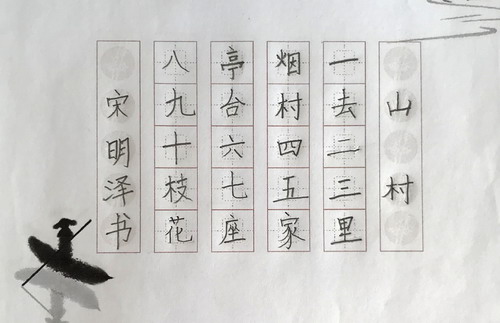 山村
一去二三里
烟村四五家
亭台六七座
八九十枝花
宋明泽书